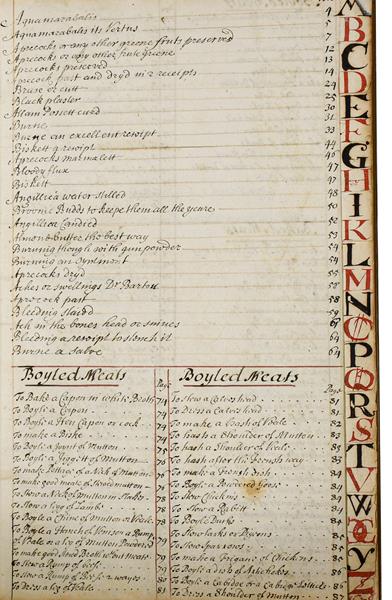 Aquamarabalis
Aquamarabalis its Vertus 5
Aprecocks or any other greene fruts preserved 7
Aprecocks or any other frute Greene 12
Aprecocks preserved 13
Aprecock past and dryd in 2 receipts 14
Bruse or cutt 24
Black plaster 25
Allam Possett curd 30
Burne 31
Burne an excellent receipt 33
Biskett a receipt 44
Aprecocks marmalett 46
Bloody flux 47
Biskett 48
Angillica water stilled 48
Broome Budds to keepe them all the yeare 50
Angillica Candied 52
Almond butter the best way 53
Burning though with gun powder 54
Burning an oyntment 54
Aprecocks dryd 55
Aches or swellings Dr Barton 58
Aprocock past 58
Bleeding 59
Ach in the bones head or sinues
Bleeding a receipt to stench it 64
Burne a salve 64
Boyled Meats
Page
To Bake a Capon in white Broth 74
To Boyle a Capon 74
To Boyle a Hen Capon or cock 74
To make a Biske 74
To Boyle a Joynt of Mutton 75
To Boyle a Legg of Mutton 76
To make of a Neck of Mutton 76
To make good meate of Mutton 77
To Stew a Neck of Mutton in 78
To Stew a Legg of Lambe 78
To Boyle a Chine of Mutton or Veale 78
To Boyle a Hanch of Venison a Rump
of Veale or a leg of Mutton
To make good Broth of Butt Meats 79
To Stew a Rump of Beefe 79
To Stew a Rump of Beefe 2 wayes 80
To Dress a leg of Veale 81
Boyled Meats
Page
To Stew a Calves head 81
To Dress a Calves head 81
To make a Hash of Veale 82
To hash a Shoulder of Mutton 83
To hash a Shoulder of Veale 83
To hash after the French way 83
To make a French dish 84
To Boyle a Powdered Goose 84
To Stew Chickins 84
To Stew a Rabitt 84
To Boyle Ducks 84
To Stew larks or 85
To Stew Sparrows 85
To make a of Chickins 85
To Boyle a dish of Artichokes 86
To Boyle a Cabidge or a Cabidge Lettice 86
To Dress a Shoulder of Mutton 87
M
B
C
D
E
F
G
H
I
K
L
M
N
O
P
Q
R
S
T
V
W
X
Y
Z